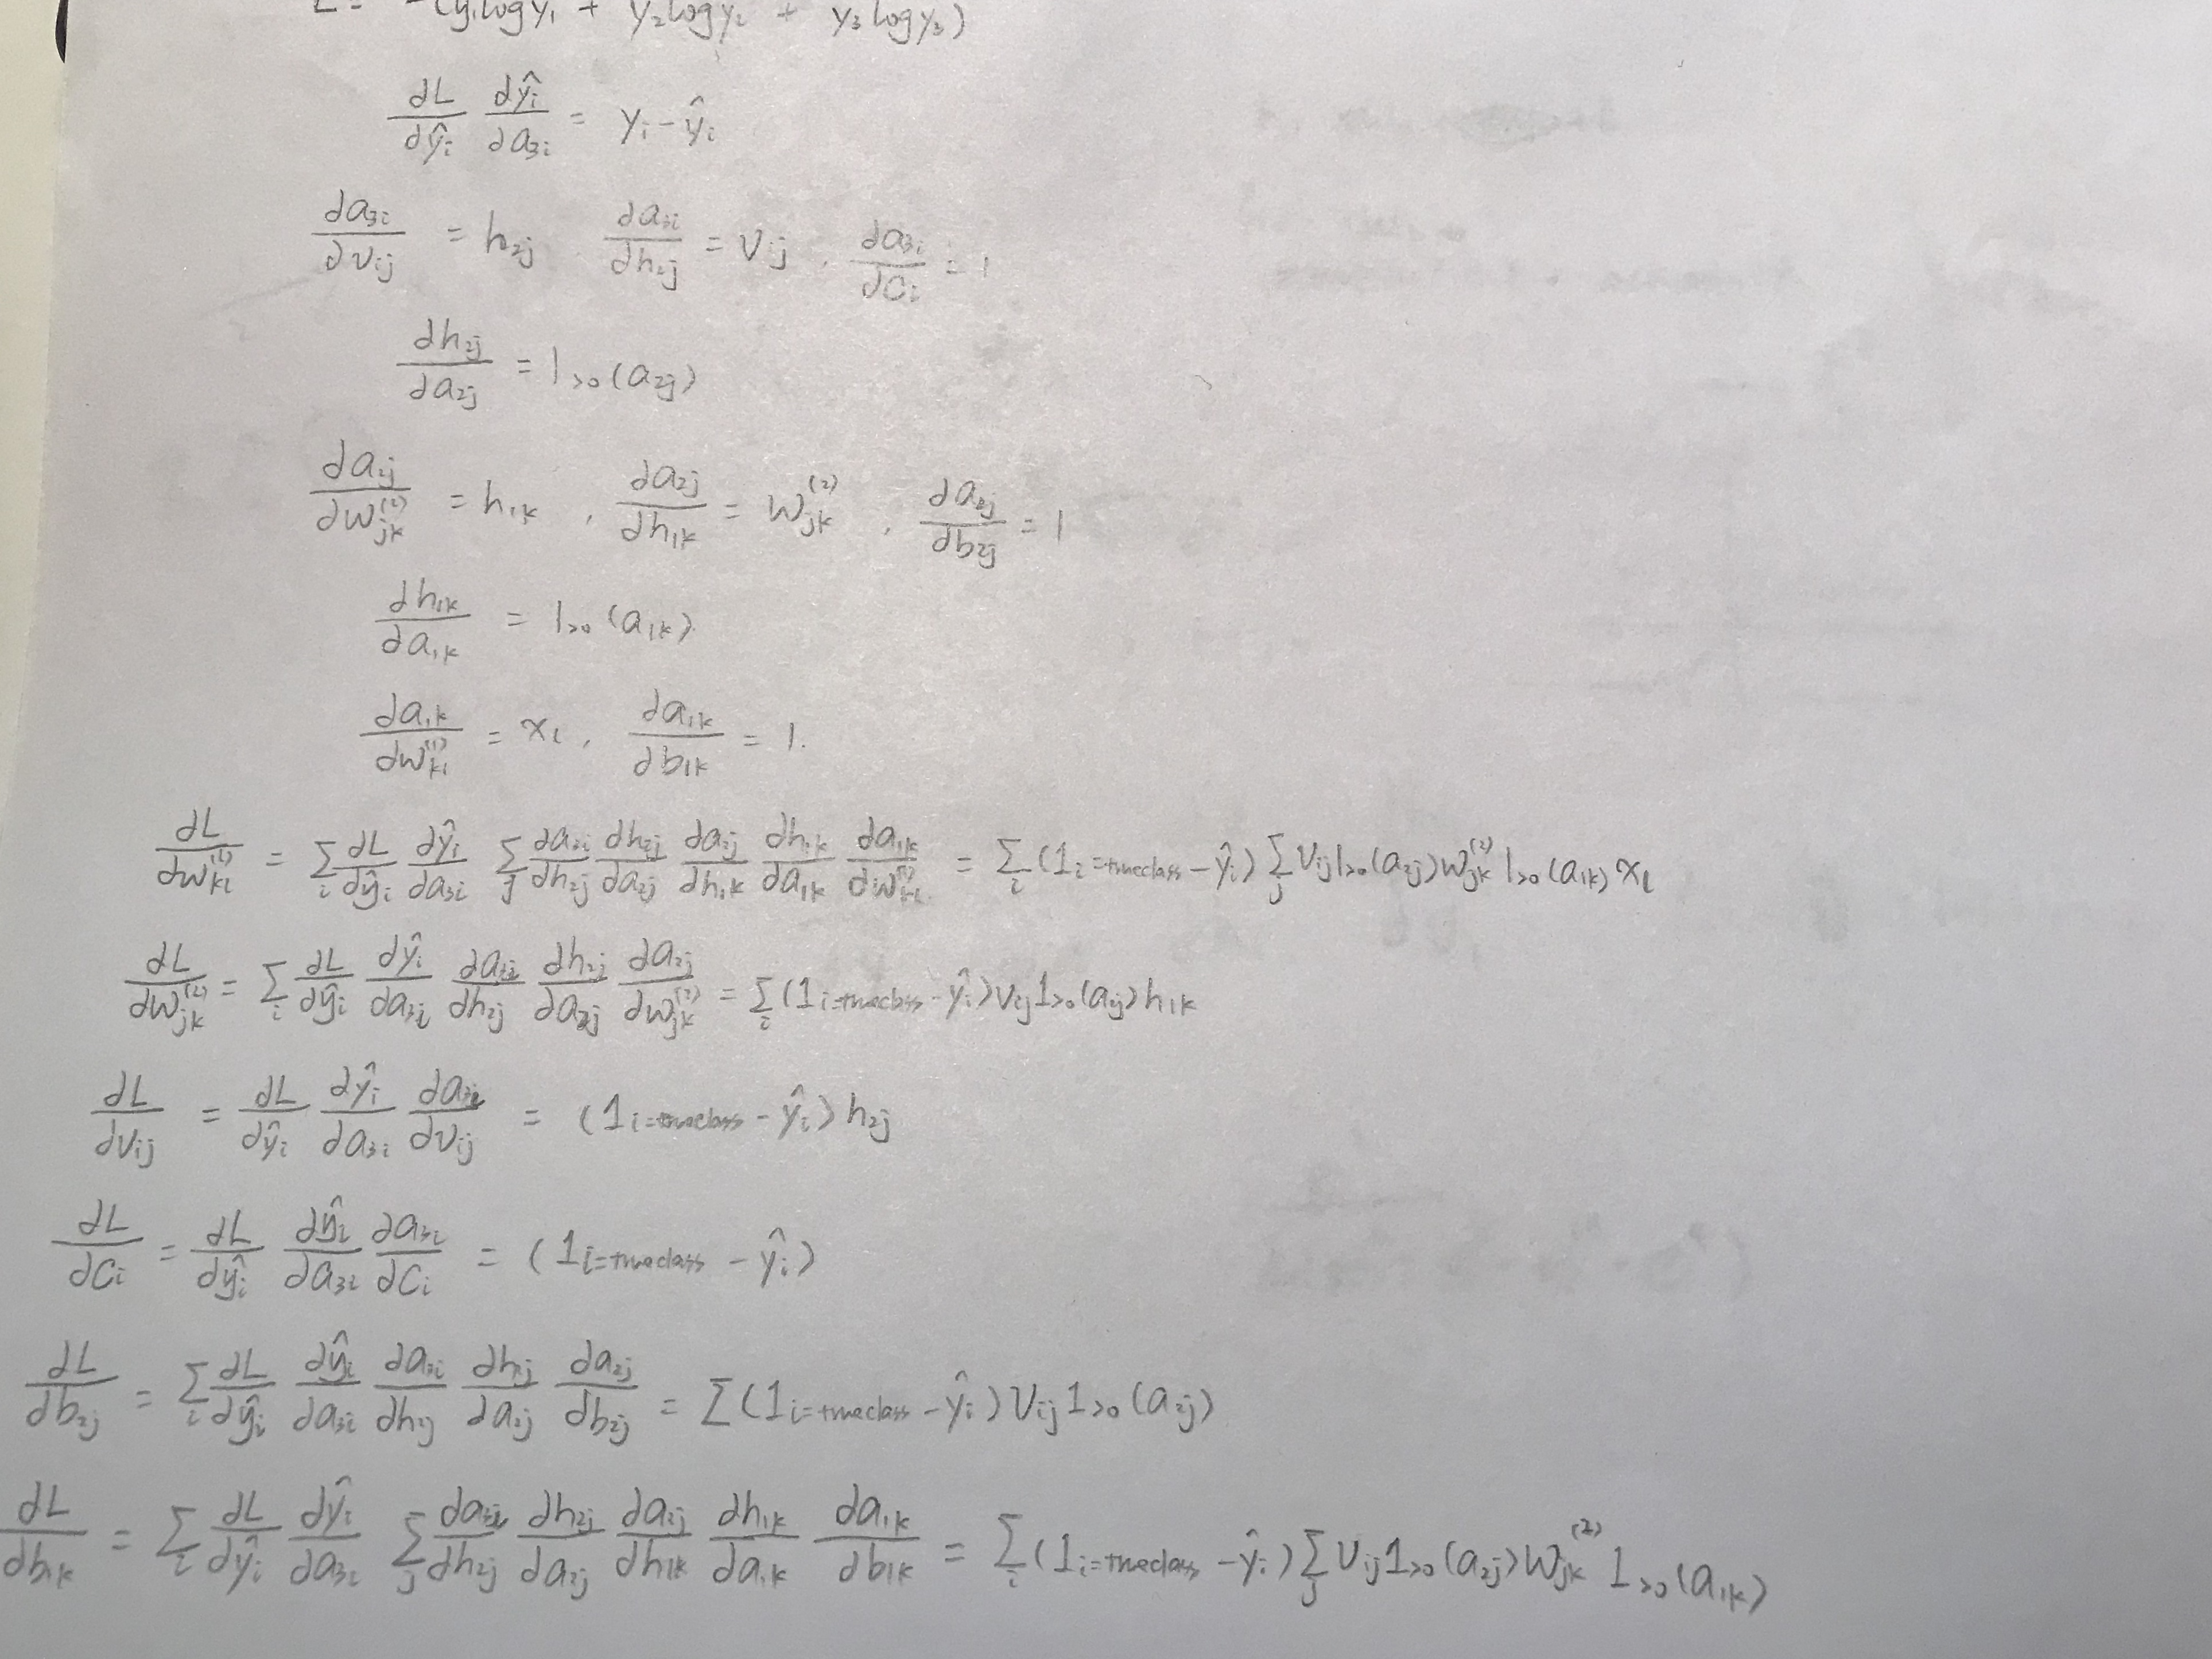 L = -(y₁logy₁ + y₂logy₂ + y₃logy₃)
∂L/∂ŷᵢ ∂ŷᵢ/∂a₃ᵢ = yᵢ - ŷᵢ
∂a₃ᵢ/∂vᵢⱼ = h₂ⱼ, ∂a₃ᵢ/∂h₂ⱼ = vᵢⱼ, ∂a₃ᵢ/∂cᵢ = 1
∂h₂ⱼ/∂a₂ⱼ = 1_{>0}(a₂ⱼ)
∂a₂ⱼ/∂w_{jk}^{(2)} = h_{1k}, ∂a₂ⱼ/∂h_{1k} = w_{jk}^{(2)}, ∂a₂ⱼ/∂b₂ⱼ = 1
∂h_{1k}/∂a_{1k} = 1_{>0}(a_{1k}).
∂a_{1k}/∂w_{kl}^{(1)} = x_l, ∂a_{1k}/∂b_{1k} = 1.
∂L/∂w_{kl}^{(1)} = Σ_i ∂L/∂ŷᵢ ∂ŷᵢ/∂a₃ᵢ Σ_j ∂a₃ᵢ/∂h₂ⱼ ∂h₂ⱼ/∂a₂ⱼ ∂a₂ⱼ/∂h_{1k} ∂h_{1k}/∂a_{1k} ∂a_{1k}/∂w_{kl}^{(1)} = Σ_i (1_{i=trueclass} - ŷᵢ) Σ_j vᵢⱼ 1_{>0}(a₂ⱼ) w_{jk}^{(2)} 1_{>0}(a_{1k}) x_l
∂L/∂w_{jk}^{(2)} = Σ_i ∂L/∂ŷᵢ ∂ŷᵢ/∂a₃ᵢ ∂a₃ᵢ/∂h₂ⱼ ∂h₂ⱼ/∂a₂ⱼ ∂a₂ⱼ/∂w_{jk}^{(2)} = Σ_i (1_{i=trueclass} - ŷᵢ) vᵢⱼ 1_{>0}(a₂ⱼ) h_{1k}
∂L/∂vᵢⱼ = ∂L/∂ŷᵢ ∂ŷᵢ/∂a₃ᵢ ∂a₃ᵢ/∂vᵢⱼ = (1_{i=trueclass} - ŷᵢ) h₂ⱼ
∂L/∂cᵢ = ∂L/∂ŷᵢ ∂ŷᵢ/∂a₃ᵢ ∂a₃ᵢ/∂cᵢ = (1_{i=trueclass} - ŷᵢ)
∂L/∂b₂ⱼ = Σ_i ∂L/∂ŷᵢ ∂ŷᵢ/∂a₃ᵢ ∂a₃ᵢ/∂h₂ⱼ ∂h₂ⱼ/∂a₂ⱼ ∂a₂ⱼ/∂b₂ⱼ = Σ (1_{i=trueclass} - ŷᵢ) vᵢⱼ 1_{>0}(a₂ⱼ)
∂L/∂b_{1k} = Σ_i ∂L/∂ŷᵢ ∂ŷᵢ/∂a₃ᵢ Σ_j ∂a₃ᵢ/∂h₂ⱼ ∂h₂ⱼ/∂a₂ⱼ ∂a₂ⱼ/∂h_{1k} ∂h_{1k}/∂a_{1k} ∂a_{1k}/∂b_{1k} = Σ_i (1_{i=trueclass} - ŷᵢ) Σ_j vᵢⱼ 1_{>0}(a₂ⱼ) w_{jk}^{(2)} 1_{>0}(a_{1k})